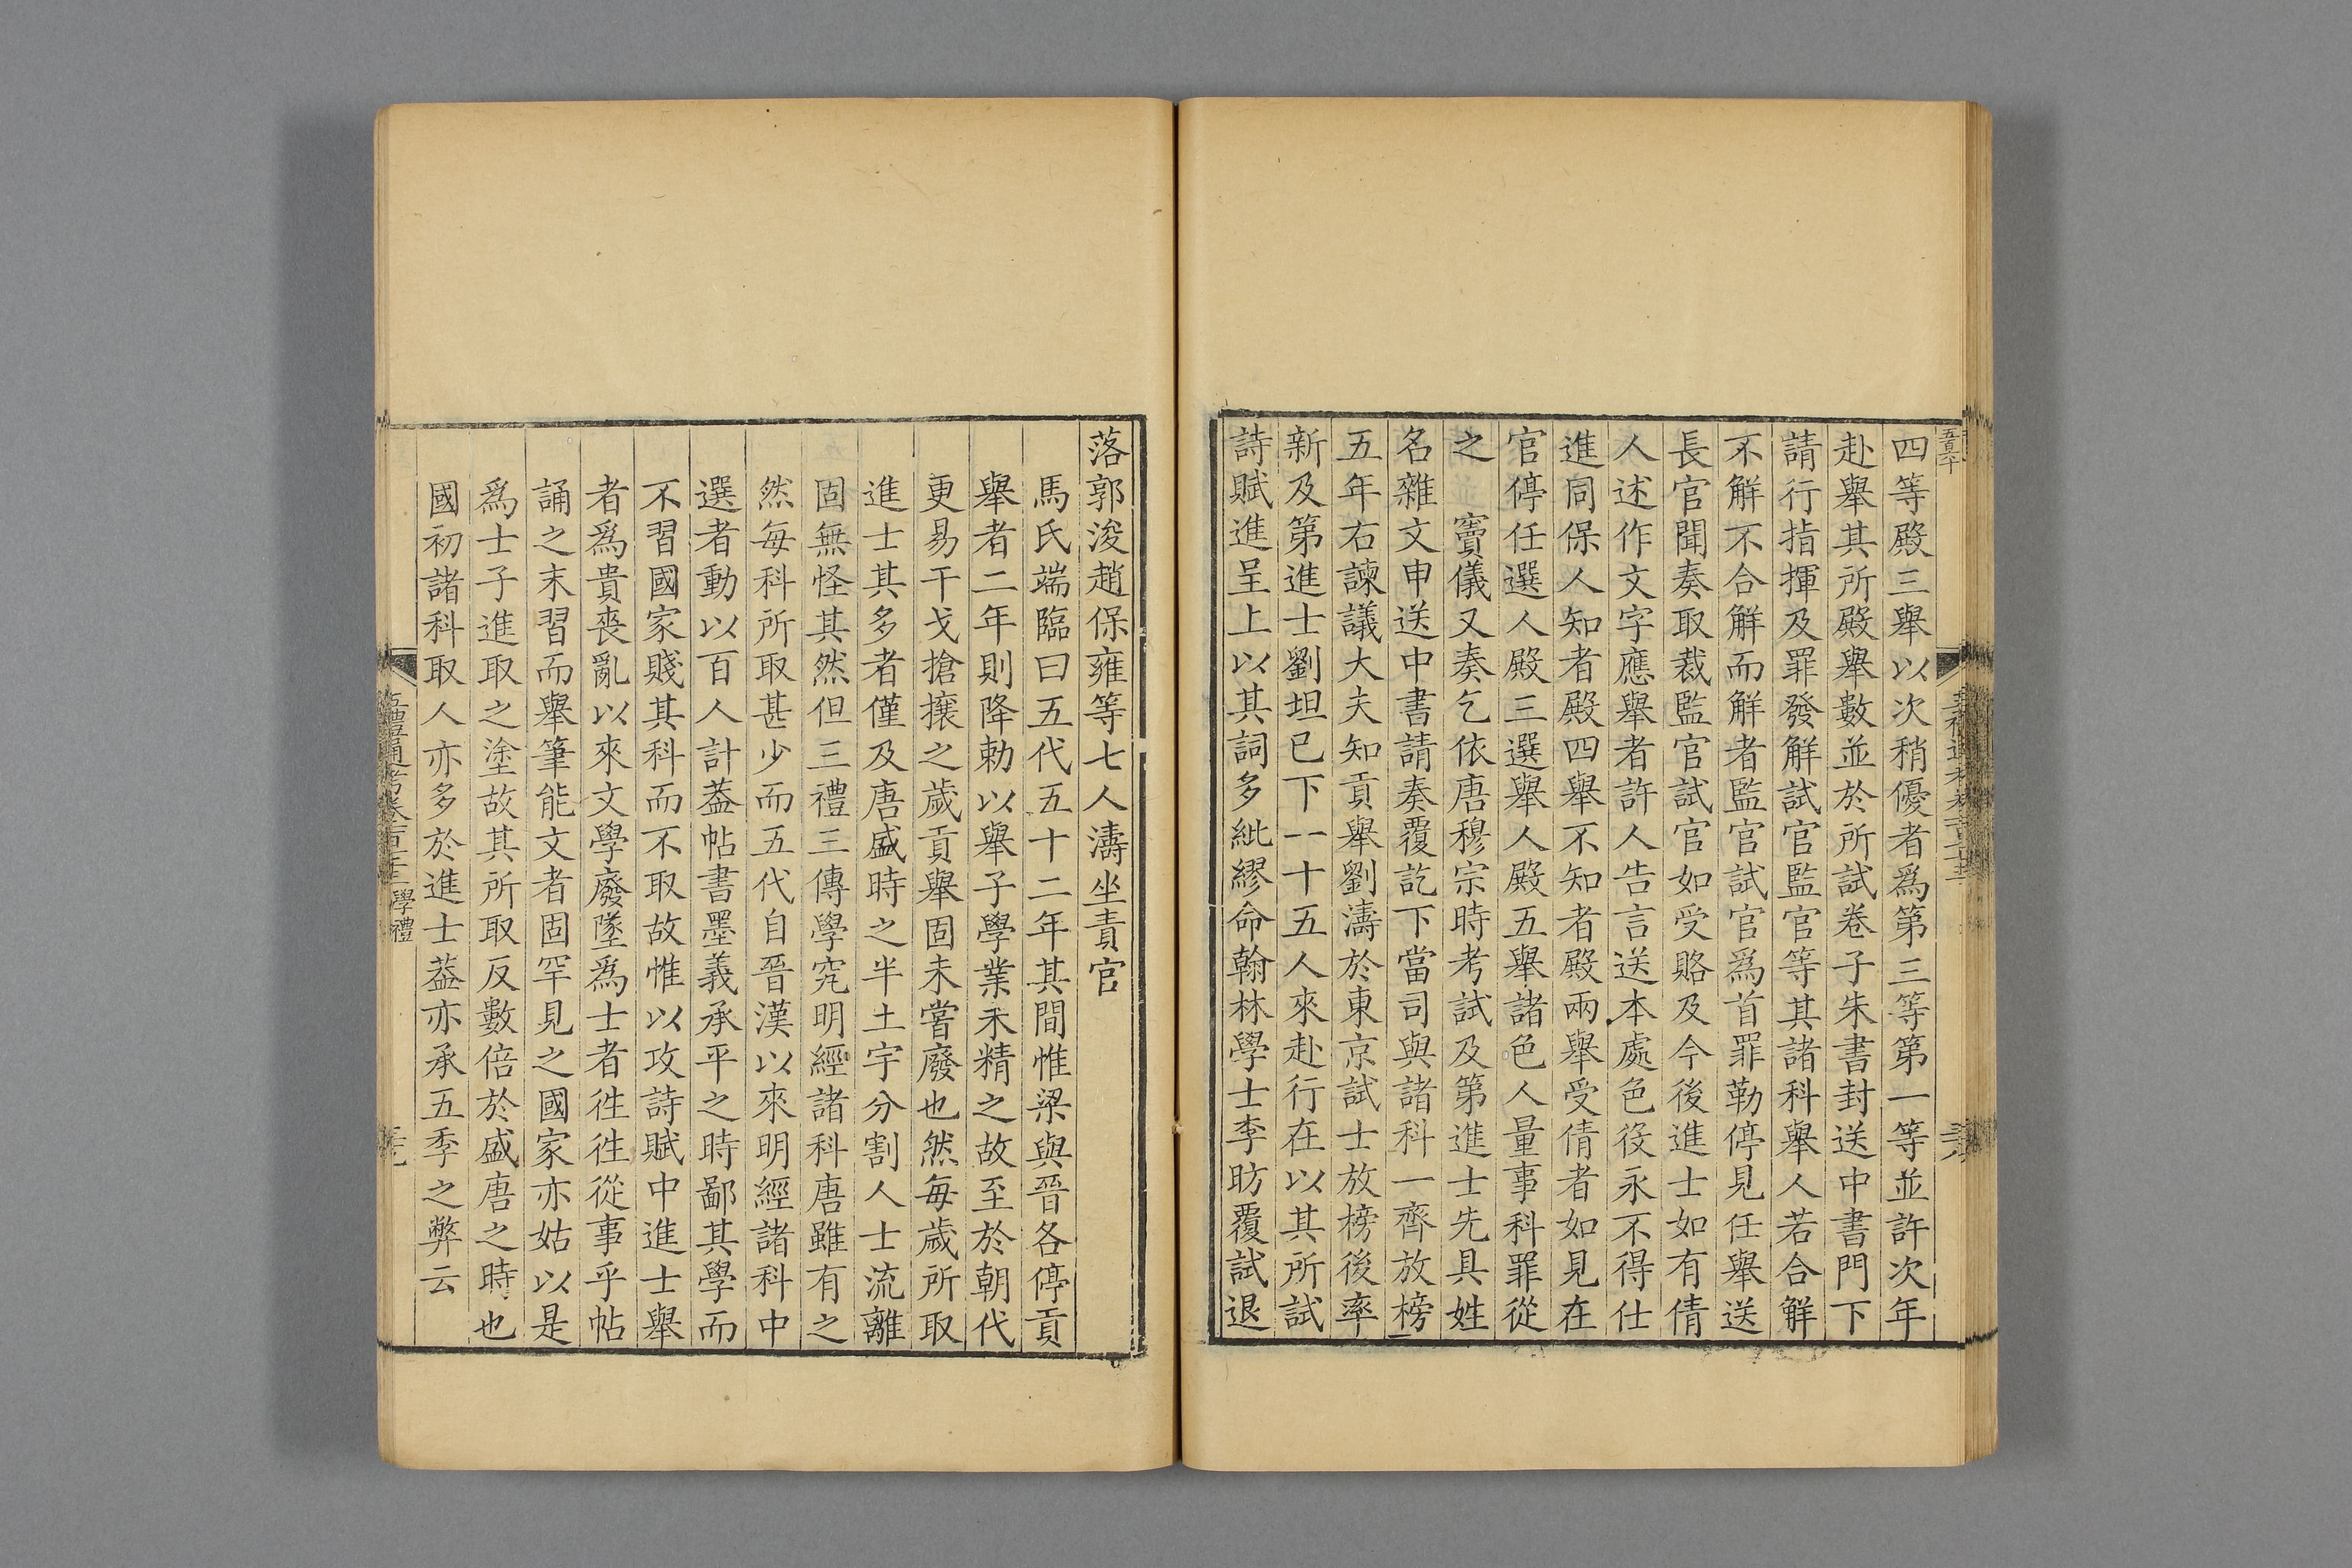 四等殿三舉以次稍優者爲第三等第一等並許次年
赴舉其所殿舉數並於所試卷子朱書封送中書門下
請行指揮及罪發解試官監官等其諸科舉人若合解
不解不合解而解者監官試官爲首罪勒停見任舉送
長官聞奏取裁監官試官如受賂及今後進士如有倩
人述作文字應舉者許人告言送本處色役永不得仕
進同保人知者殿四舉不知者殿兩舉受倩者如見在
官停任選人殿三選舉人殿五舉諸色人量事科罪從
之　竇儀又奏乞依唐穆宗時考試及第進士先具姓
名雜文申送中書請奏覆訖下當司與諸科一齊放榜
五年右諫議大夫知貢舉劉濤於東京試士放榜後率
新及第進士劉坦已下一十五人來赴行在以其所試
詩賦進呈上以其詞多紕繆命翰林學士李昉覆試退
落郭浚趙保雍等七人濤坐責官
馬氏端臨曰五代五十二年其間惟梁與晉各停貢
舉者二年則降勅以舉子學業未精之故至於朝代
更易干戈搶攘之歲貢舉固未嘗廢也然每歲所取
進士其多者僅及唐盛時之半土宇分割人士流離
固無怪其然但三禮三傳學究明經諸科唐雖有之
然每科所取甚少而五代自晉漢以來明經諸科中
選者動以百人計葢帖書墨義承平之時鄙其學而
不習國家賤其科而不取故惟以攻詩賦中進士舉
者爲貴喪亂以來文學廢墜爲士者徃徃從事乎帖
誦之末習而舉筆能文者固罕見之國家亦姑以是
爲士子進取之塗故其所取反數倍於盛唐之時也
國初諸科取人亦多於進士葢亦承五季之弊云
學禮